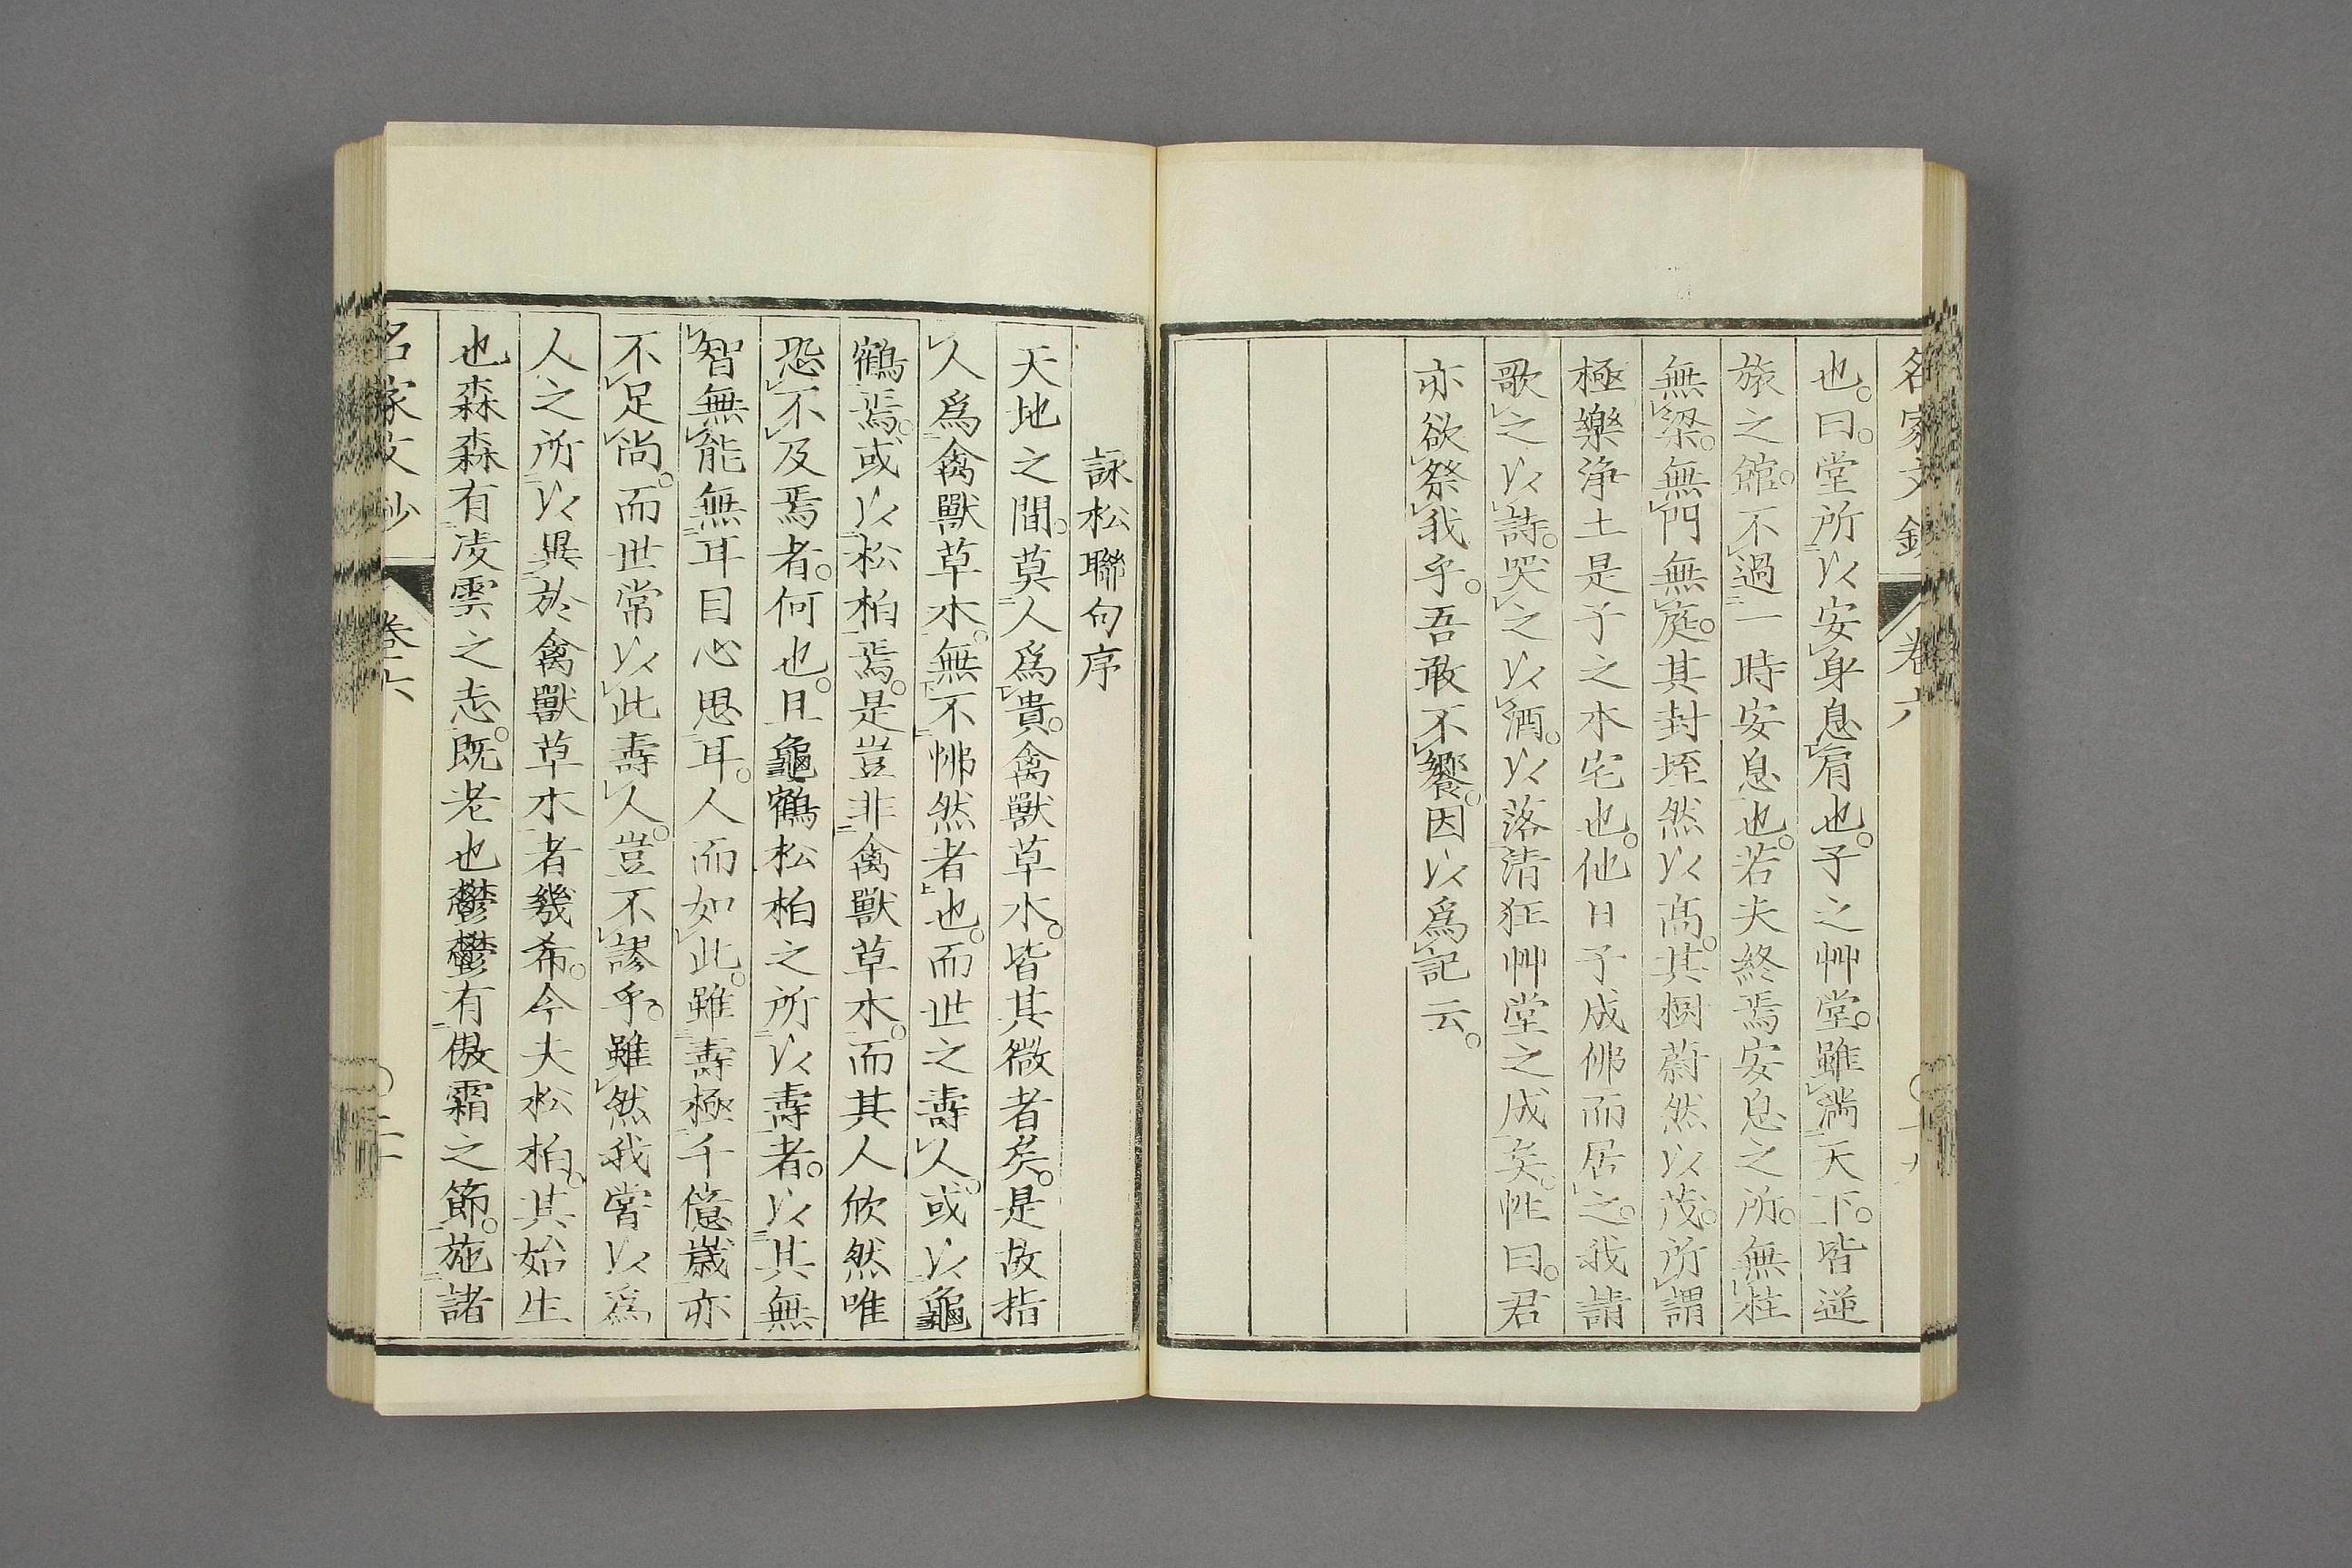 名家文鈔 卷六
也。曰。堂所以安身息肩也。子之艸堂。雖滿天下。皆逆
旅之館。不過一時安息也。若夫終焉安息之所。無柱
無梁。無門無庭。其封垤然以高。其樹蔚然以茂。所謂
極樂淨土是子之本宅也。他日子成佛而居之。我請
歌之以詩。哭之以酒。以落清狂艸堂之成矣。性曰。君
亦欲祭我乎。吾敢不饗。因以爲記云。
詠松聯句序
天地之間。莫人爲貴。禽獸草木。皆其微者矣。是故指
人爲禽獸草木。無不怫然者也。而世之壽人。或以龜
鶴焉。或以松柏焉。是豈非禽獸草木。而其人欣然唯
恐不及焉者。何也。且龜鶴松柏之所以壽者。以其無
智無能無耳目心思耳。人而如此。雖壽極千億歲亦
不足尙。而世常以此壽人。豈不謬乎。雖然我嘗以爲
人之所以異於禽獸草木者幾希。今夫松柏。其始生
也森森有凌雲之志。既老也鬱鬱有傲霜之節。施諸
名家文鈔 卷六